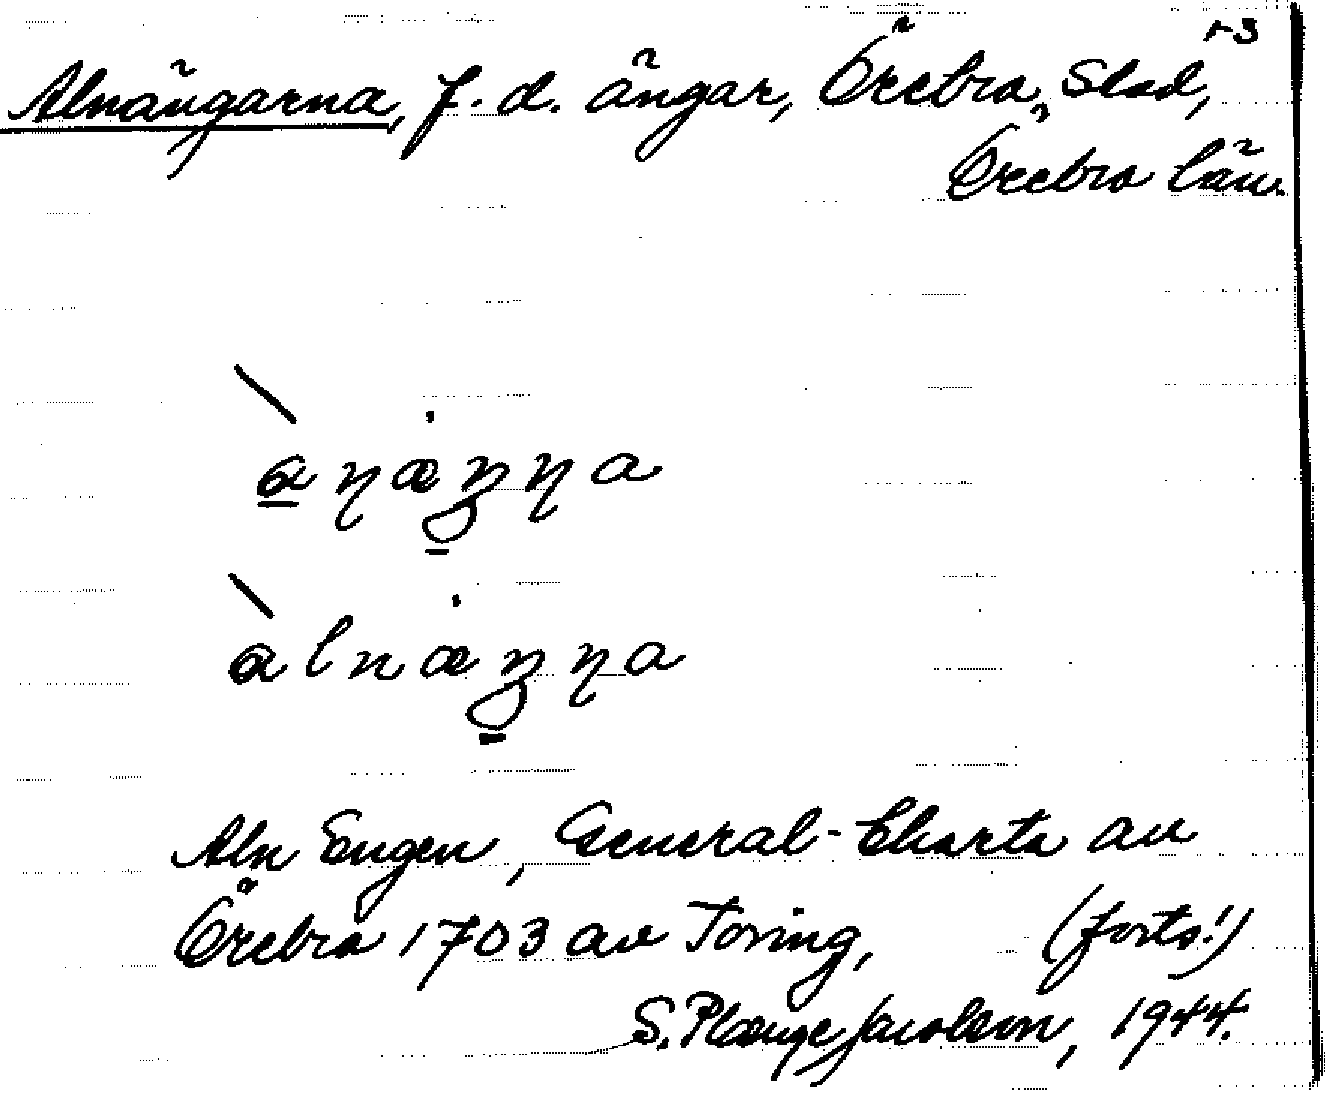 1-3
Alnängarna, f. d. ängar, Örebro Stad,
Örebro län.
Aln Engen, General-Charta av
Örebro 1703 av Toring, (forts!)
S. Plænge Jacobson, 1944.